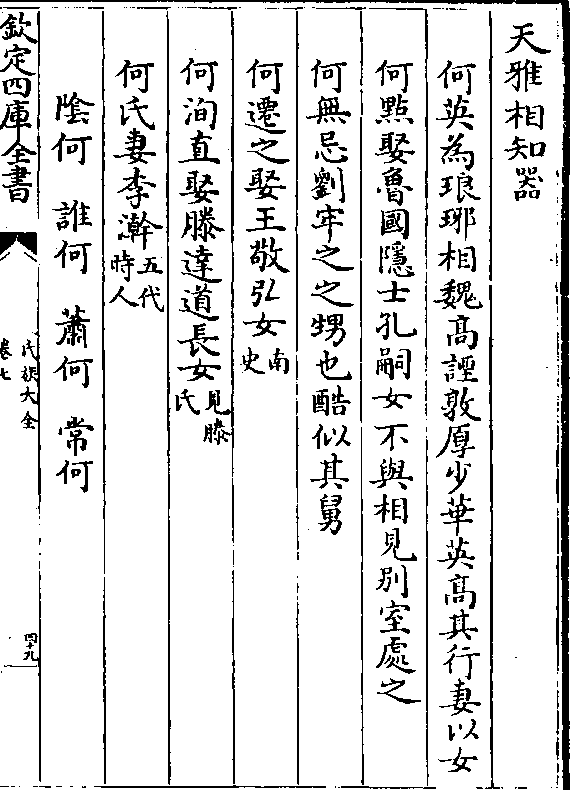 天雅相知器
何英為琅琊相魏髙誣敦厚少華英髙其行妻以女
何㸃娶魯國隱士孔嗣女不與相見别室處之
何無忌劉牢之之甥也酷似其舅
何遷之娶王敬弘女南史
何洵直娶滕達道長女見滕氏
何氏妻李澣五代時人
陰何　誰何　蕭何　常何
欽定四庫全書
氏族大全
卷七
四十九